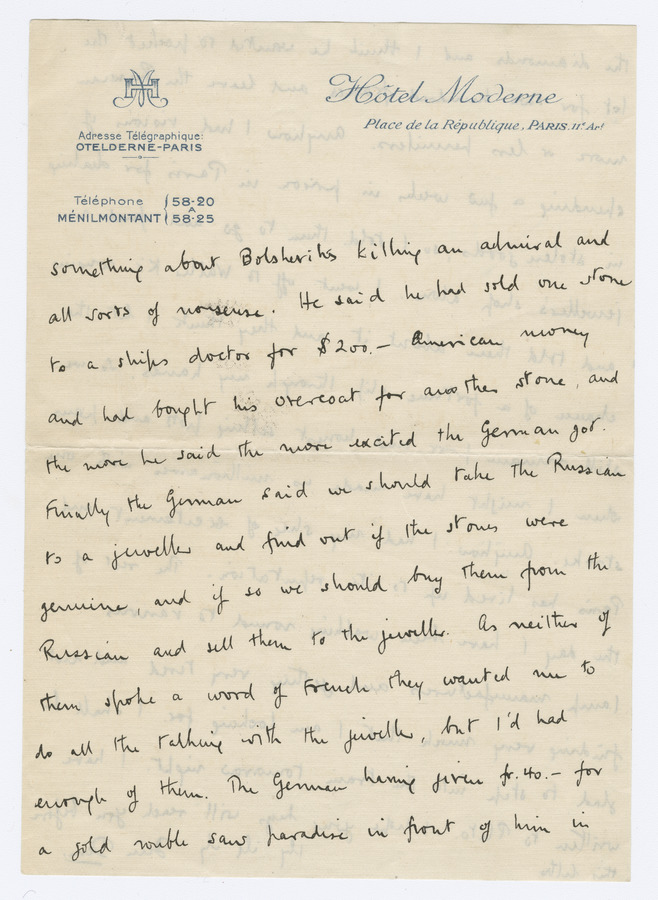 Hôtel Moderne
Place de la République, PARIS. 11e Arrt
Adresse Télégraphique:
OTELDERNE-PARIS
Téléphone 58-20
A
MÉNILMONTANT 58-25
something about Bolsheviks killing an admiral and
all sorts of nonsense. He said he had sold one stone
to a ships doctor for $200.- American money
and had bought his overcoat for another stone, and
the more he said the more excited the German got.
Finally the German said we should take the Russian
to a jeweller and find out if the stones were
genuine, and if so we should buy them from the
Russian and sell them to the jeweller. As neither of
them spoke a word of French they wanted me to
do all the talking with the jeweller, but I'd had
enough of them. The German having given fr. 40.- for
a gold rouble saw paradise in front of him in